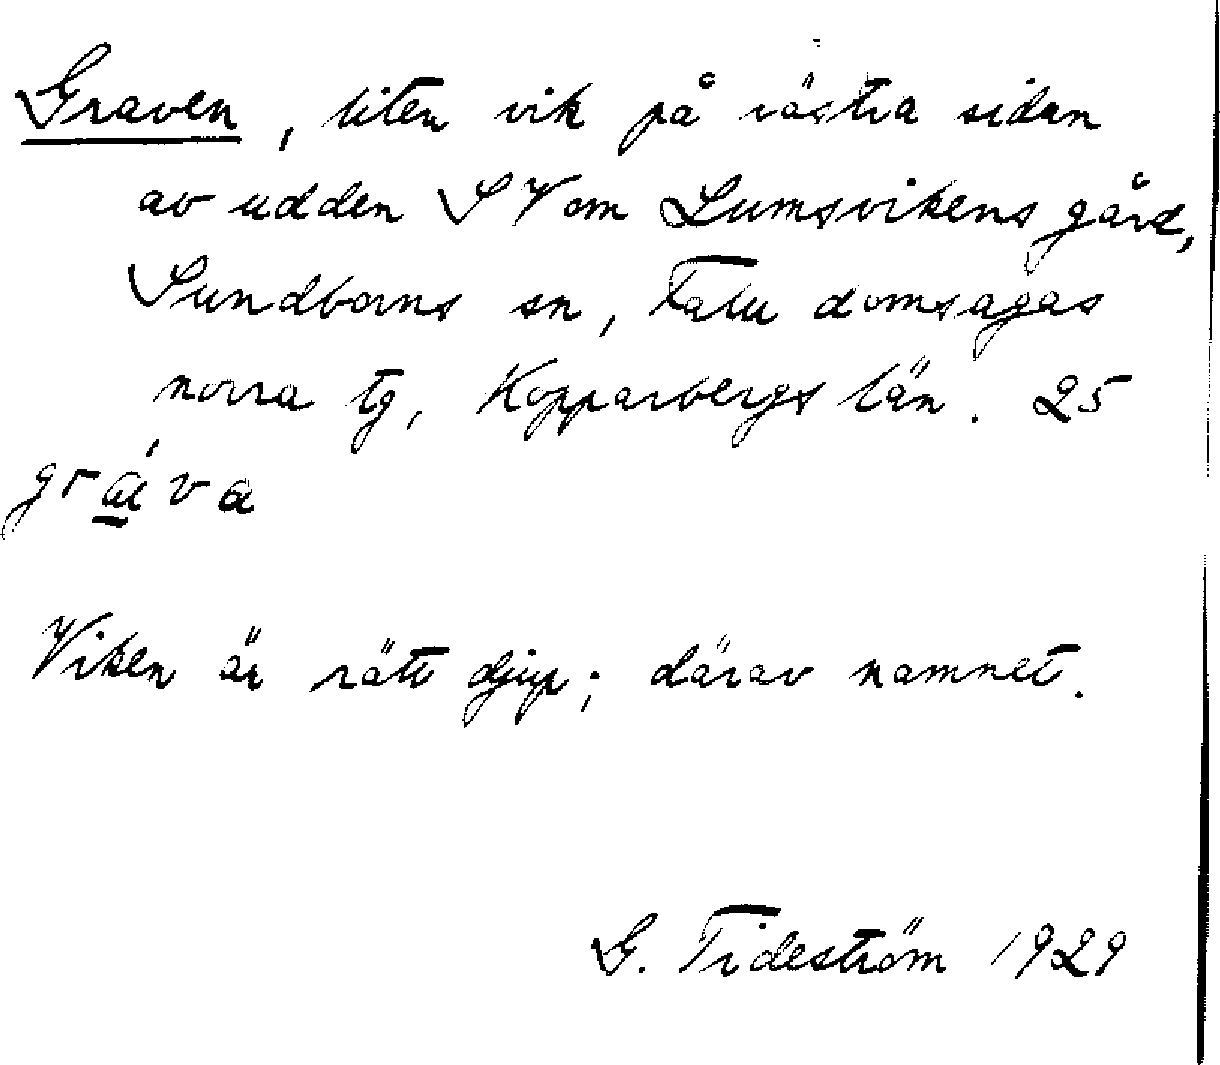 Graven, liten vik på västra sidan
av udden SV om Lumsvikens gård,
Sundborns sn, Falu domsagas
norra tg, Kopparbergs län. 25
grά̲vα
Viken är rätt djup; därav namnet.
G. Tideström 1929